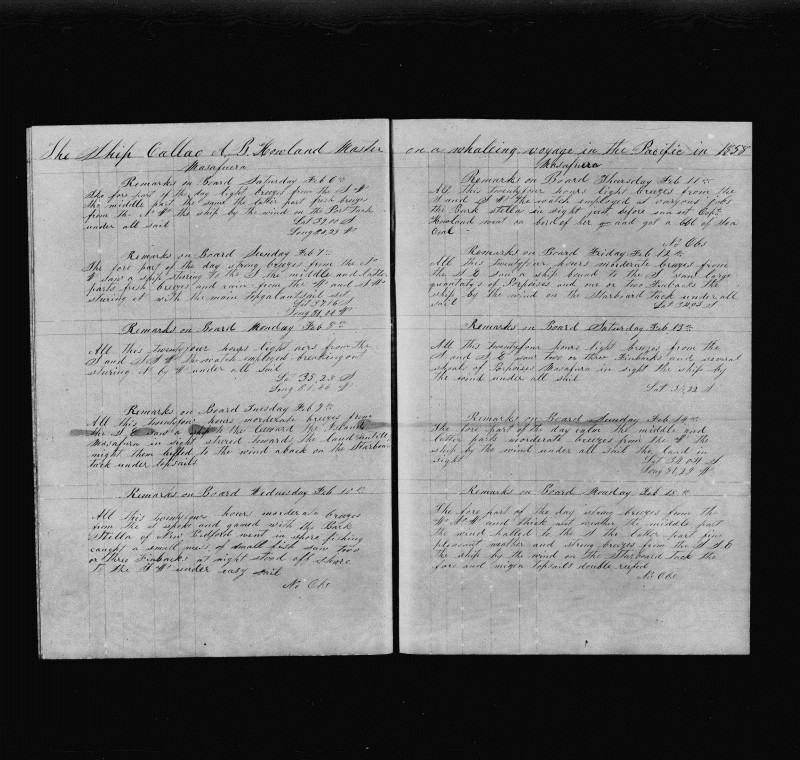 The Ship Callao A. B. Howland Master
Masafuera
Remarks on Board Saturday Feb 6th
The fore part of the day light breezes from the S W
the middle part the same the latter part fresh breezes
from the N W the ship by the wind on the Port Tack
under all sail
Lat
Long
Remarks on Board Sunday Feb 7th
The fore part of the day strong breezes from the N
W saw a ship stering to the S the middle and latter
parts fresh breezes and rain from the W and S W
stering N with the main topgalant sail set
Lat
Long
Remarks on Board Monday Feb 8th
All this twentyfour hours light aers from the
S and S W the watch employed breaking out
stering N by W under all sail
Lat 35.23 S
Long 81.
Remarks on Board Tuesday Feb 9th
All this twentyfour hours morderate breezes from
the S E saw a to the leward the Island
Masafura in sight stered towards the land untill
night them luffed to the wind aback on the Starboard
tack under topsails
Remarks on Board Wednesday Feb 10th
All this twentyfour hours morderate breezes
from the S spoke and gamed with the Bark
Stella of New Bedford went in shore fishing
caught a small mess of small fish saw two
or three Finbacks at night stood off shore
to the S W under easy sail
No Obs
on a whaleing voyage in the Pacific in 1858
Masafuera
Remarks on Board Thursday Feb 11th
All this twentyfour hours light breezes from the
S and S W the watch employed at varyous jobs
the Bark Stella in sight just before sun set Capt
Howland went on bord of her and got a bbl of
No Obs
Remarks on Board Friday Feb 12th
All this twentyfour hours morderate breezes from
the S E saw a ship bound to the S saw large
quantatys of Porpoises and one or two Finbacks the
ship by the wind on the Starboard Tack under all
sail
Lat 34.03 S
Remarks on Board Saturday Feb 13th
All this twentyfour hours light breezes from the
S and S E saw two or three Finbacks and several
shoal of Porpoises Masafura in sight the ship by
the wind under all sail
Lat S
Remarks on Board Sunday Feb 14th
The fore part of the day calm the middle and
latter parts morderate breezes from the N the
ship by the wind under all sail the land in
sight
Lat 34.04 S
Long 81.29 W
Remarks on Board Monday Feb 15th
The fore part of the day strong breezes from the
W N W and thick wet weather the middle part
the wind halled to the S the latter part fine
plesent weather and strong breezes from the S S E
the ship by the wind on the Starboard Tack the
fore and mizen topsails double reefed
No Obs